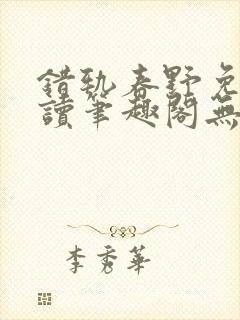 錯執春野免
讀筆趣閣無
李秀華